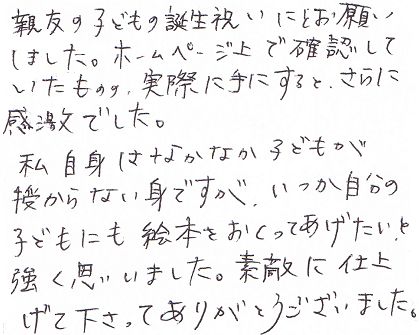 親友の子どもの誕生祝いにとお願い
しました。ホームページ上で確認して
いたものの、実際に手にすると、さらに
感激でした。
私自身はなかなか子どもが
授からない身ですが、いつか自分の
子どもにも絵本をおくってあげたいと
強く思いました。素敵に仕上
げて下さってありがとうございました。